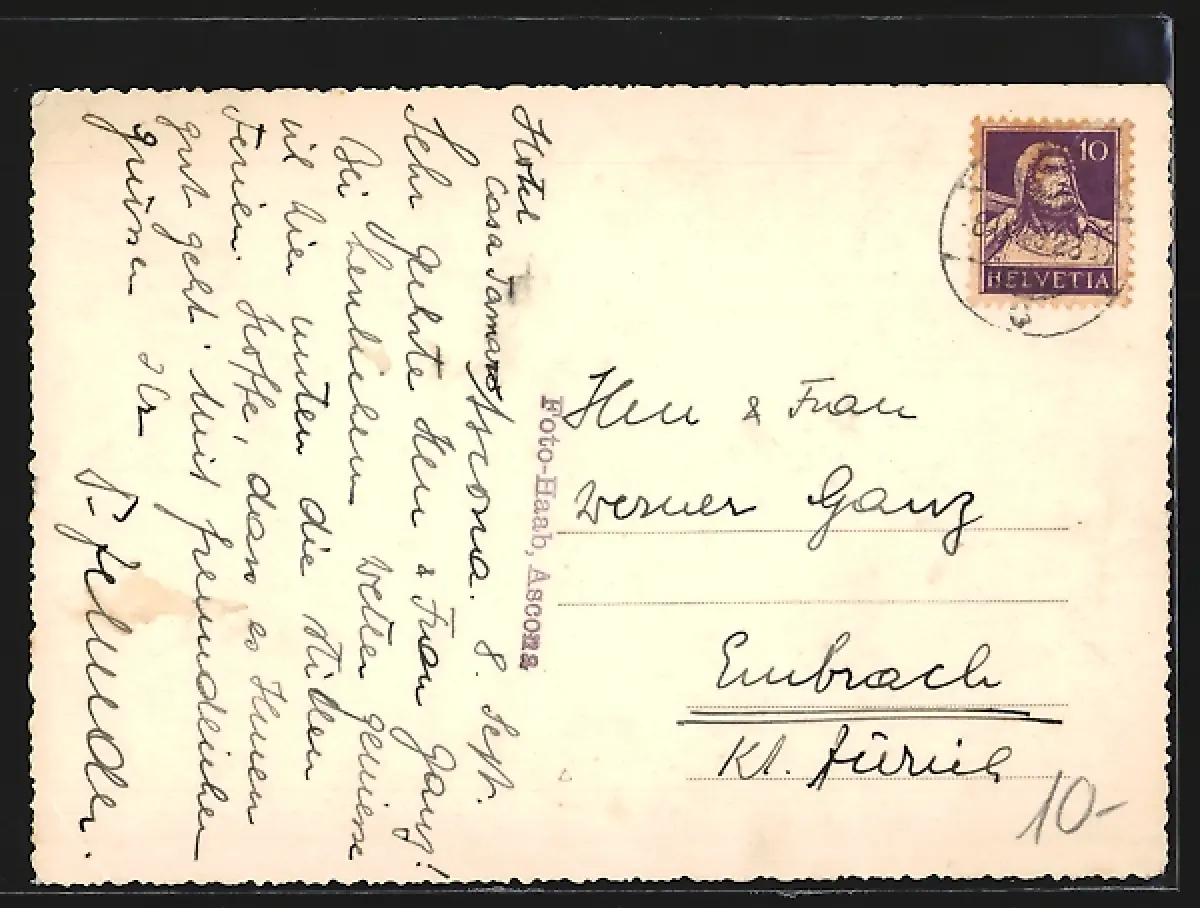 Hotel
Casa Tamaro
Ascona. 8. Sept.
Sehr geehrte Herr & Frau Ganz!
Bei herrlichem Wetter geniesse
ich hier unten die stillen
Ferien. Hoffe, dass es Ihnen
gut geht. Mit freundlichen
grüssen Ihr
Foto-Haab, Ascona
10
HELVETIA
Herr & Frau
Werner Ganz
Embrach
Kt. Zürich
10-